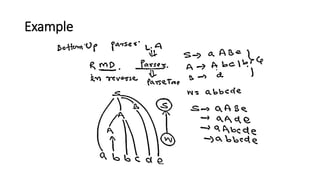 Example
Bottom Up Parser: L.A
RMD. Parser
in reverse Parse Tree
S → a A B e
A → A b c | b
B → d
G
w = abbcde
S
A B
A
a b b c d e
S
w
S → a A B e
→ a A d e
→ a A b c d e
→ a b b c d e